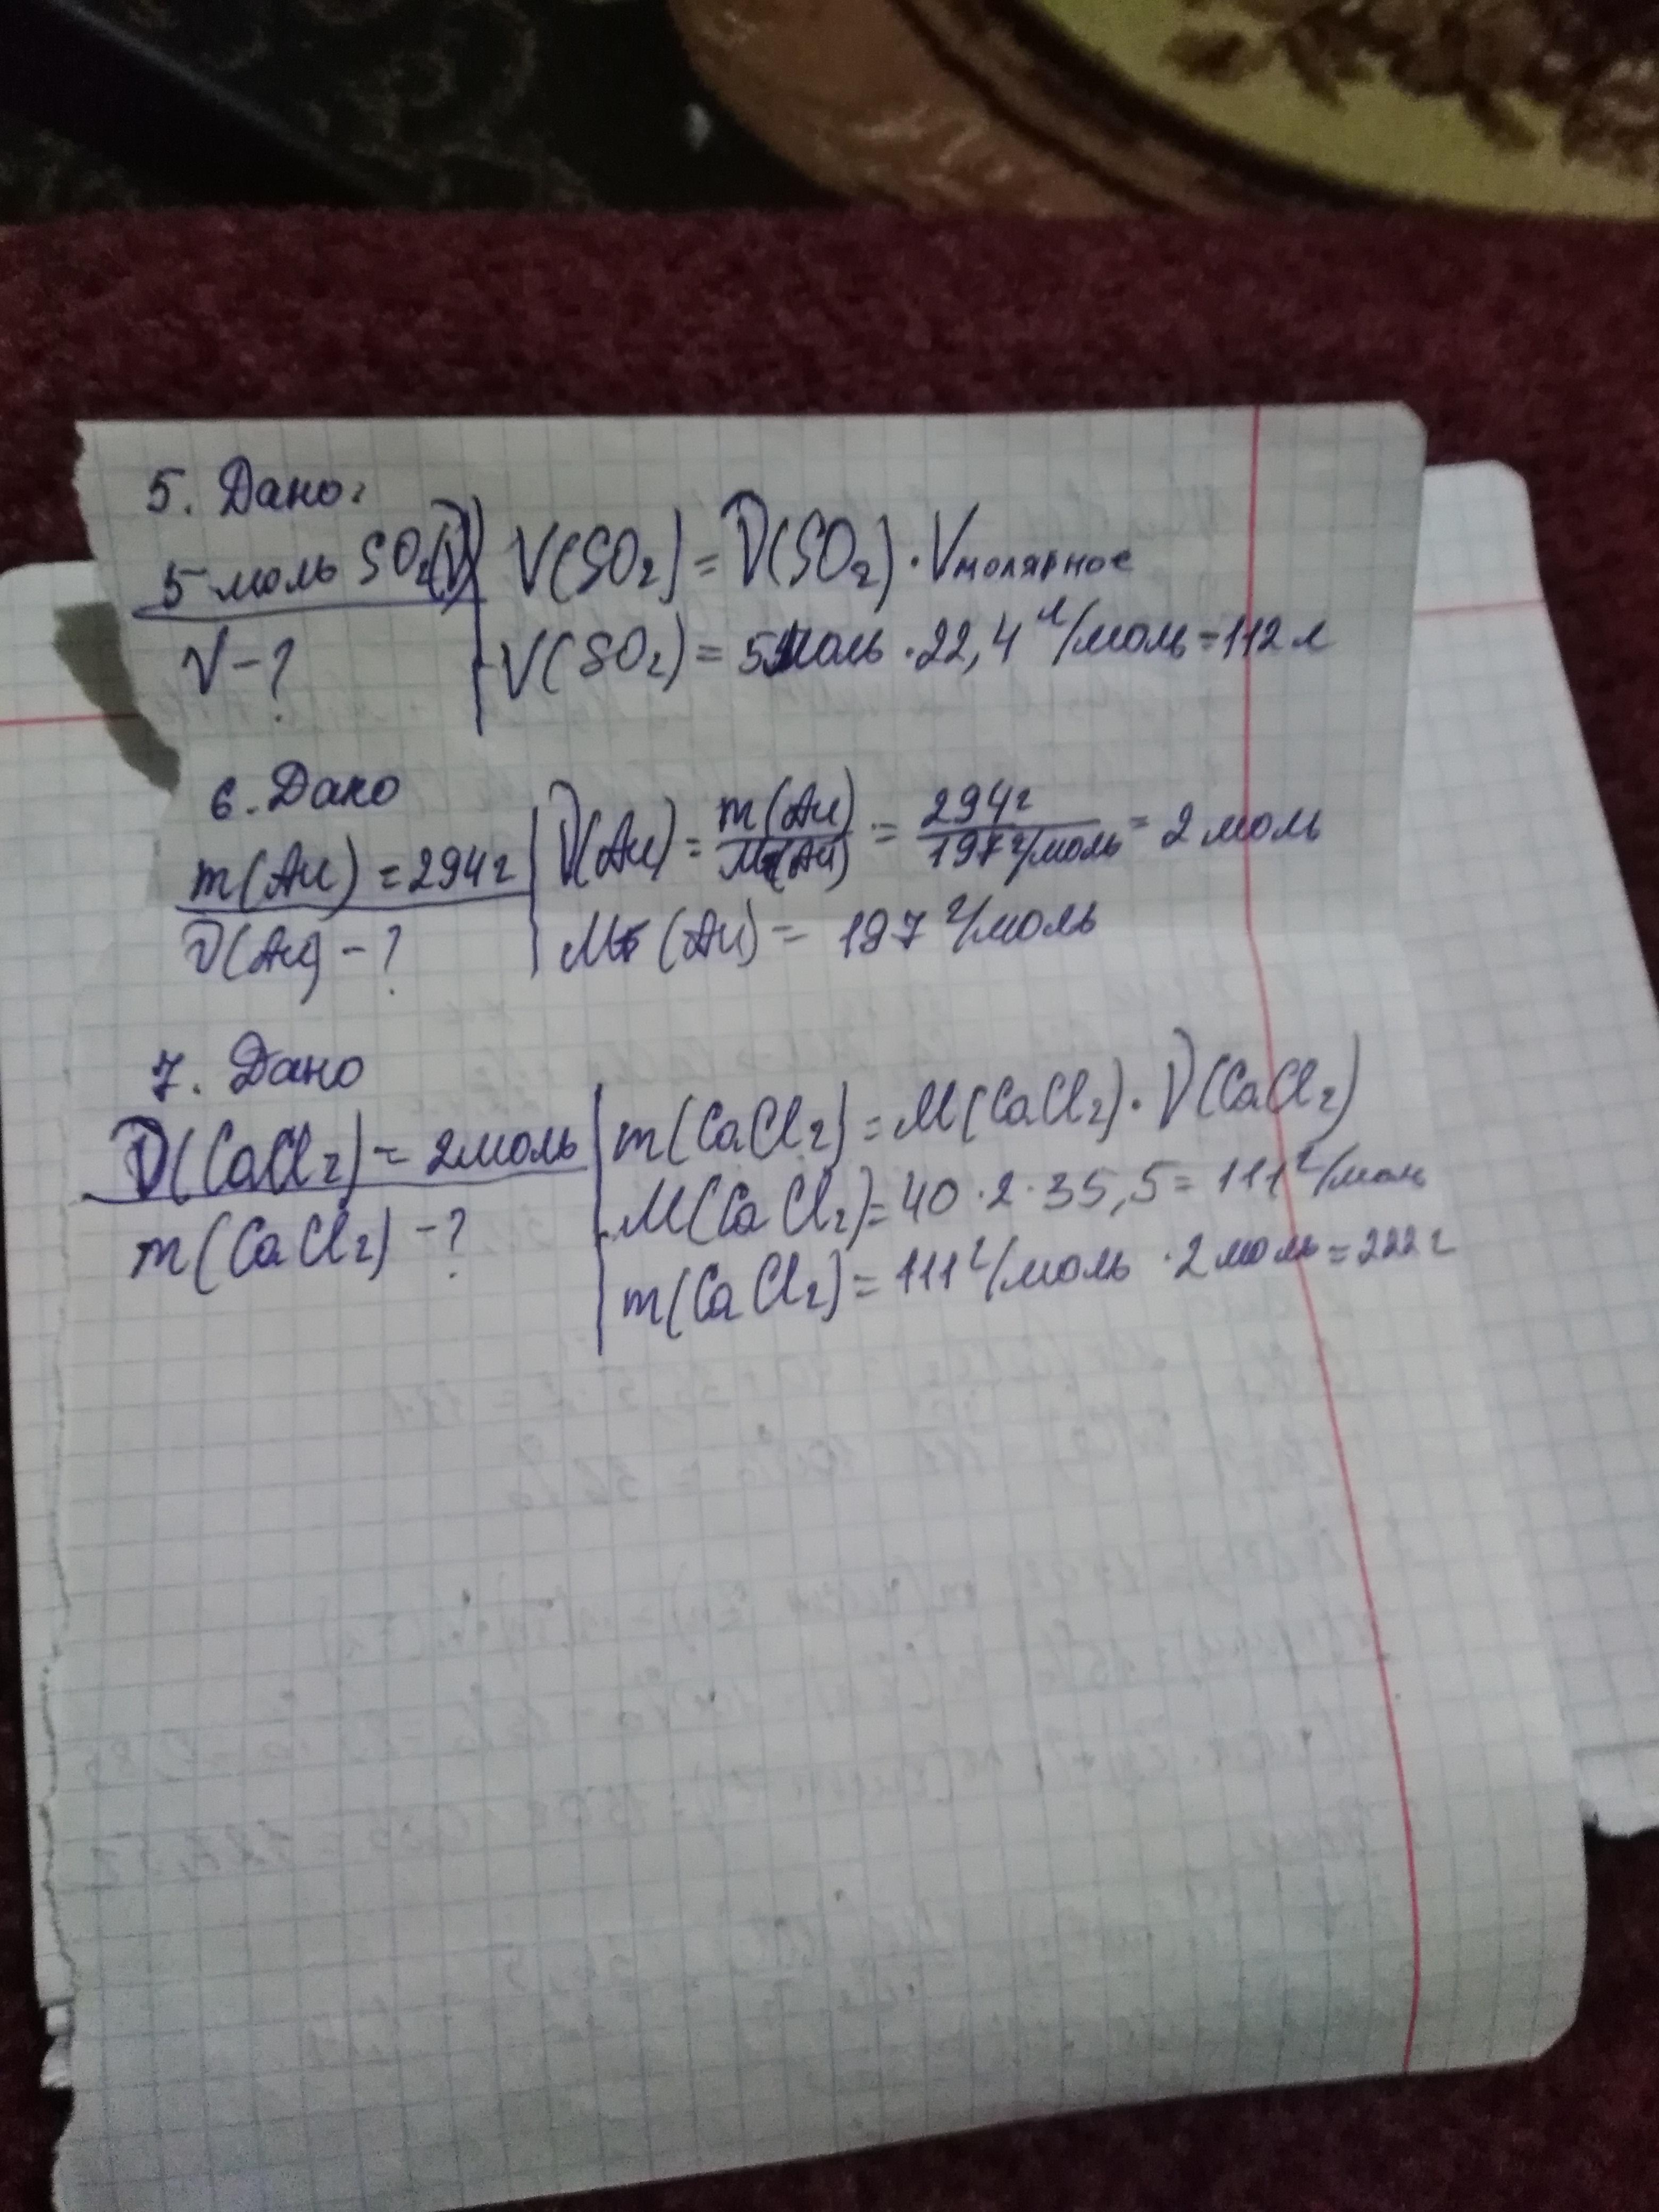 5. Дано:
5 моль SO₂(ν) V(SO₂) = ν(SO₂) · Vмолярное
V - ? V(SO₂) = 5 моль · 22,4 л/моль = 112 л
6. Дано
m(Au) = 294 г ν(Au) = m(Au)/M(Au) = 294 г/197 г/моль = 2 моль
ν(Au) - ? M (Au) = 197 г/моль
7. Дано
ν(CaCl₂) = 2 моль m(CaCl₂) = M(CaCl₂) · ν(CaCl₂)
M(CaCl₂) = 40 · 2 · 35,5 = 111 г/моль
m(CaCl₂) - ? m(CaCl₂) = 111 г/моль · 2 моль = 222 г